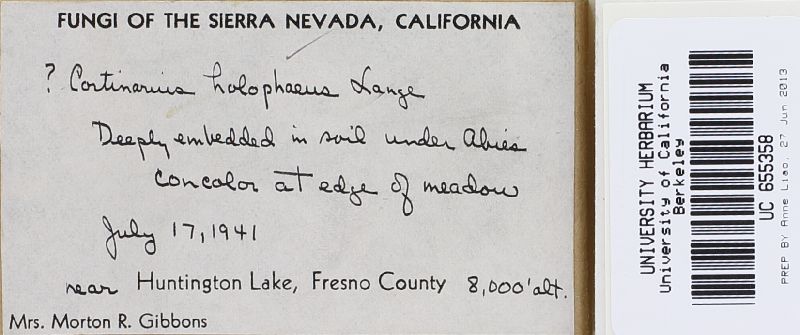 FUNGI OF THE SIERRA NEVADA, CALIFORNIA
? Cortinarius holophaeus Lange
Deeply embedded in soil under Abies
concolor at edge of meadow
July 17, 1941
near Huntington Lake, Fresno County 8,000' alt.
Mrs. Morton R. Gibbons
UNIVERSITY HERBARIUM
University of California
Berkeley
UC 655358
PREP BY Anne Liao, 27 Jun 2013